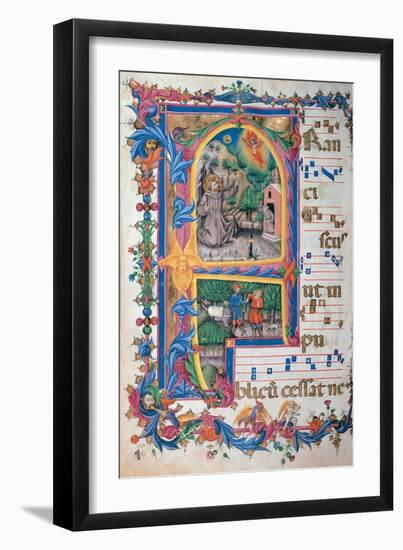 Fran
ci
scus
ut in
pu
blicū cessat ne